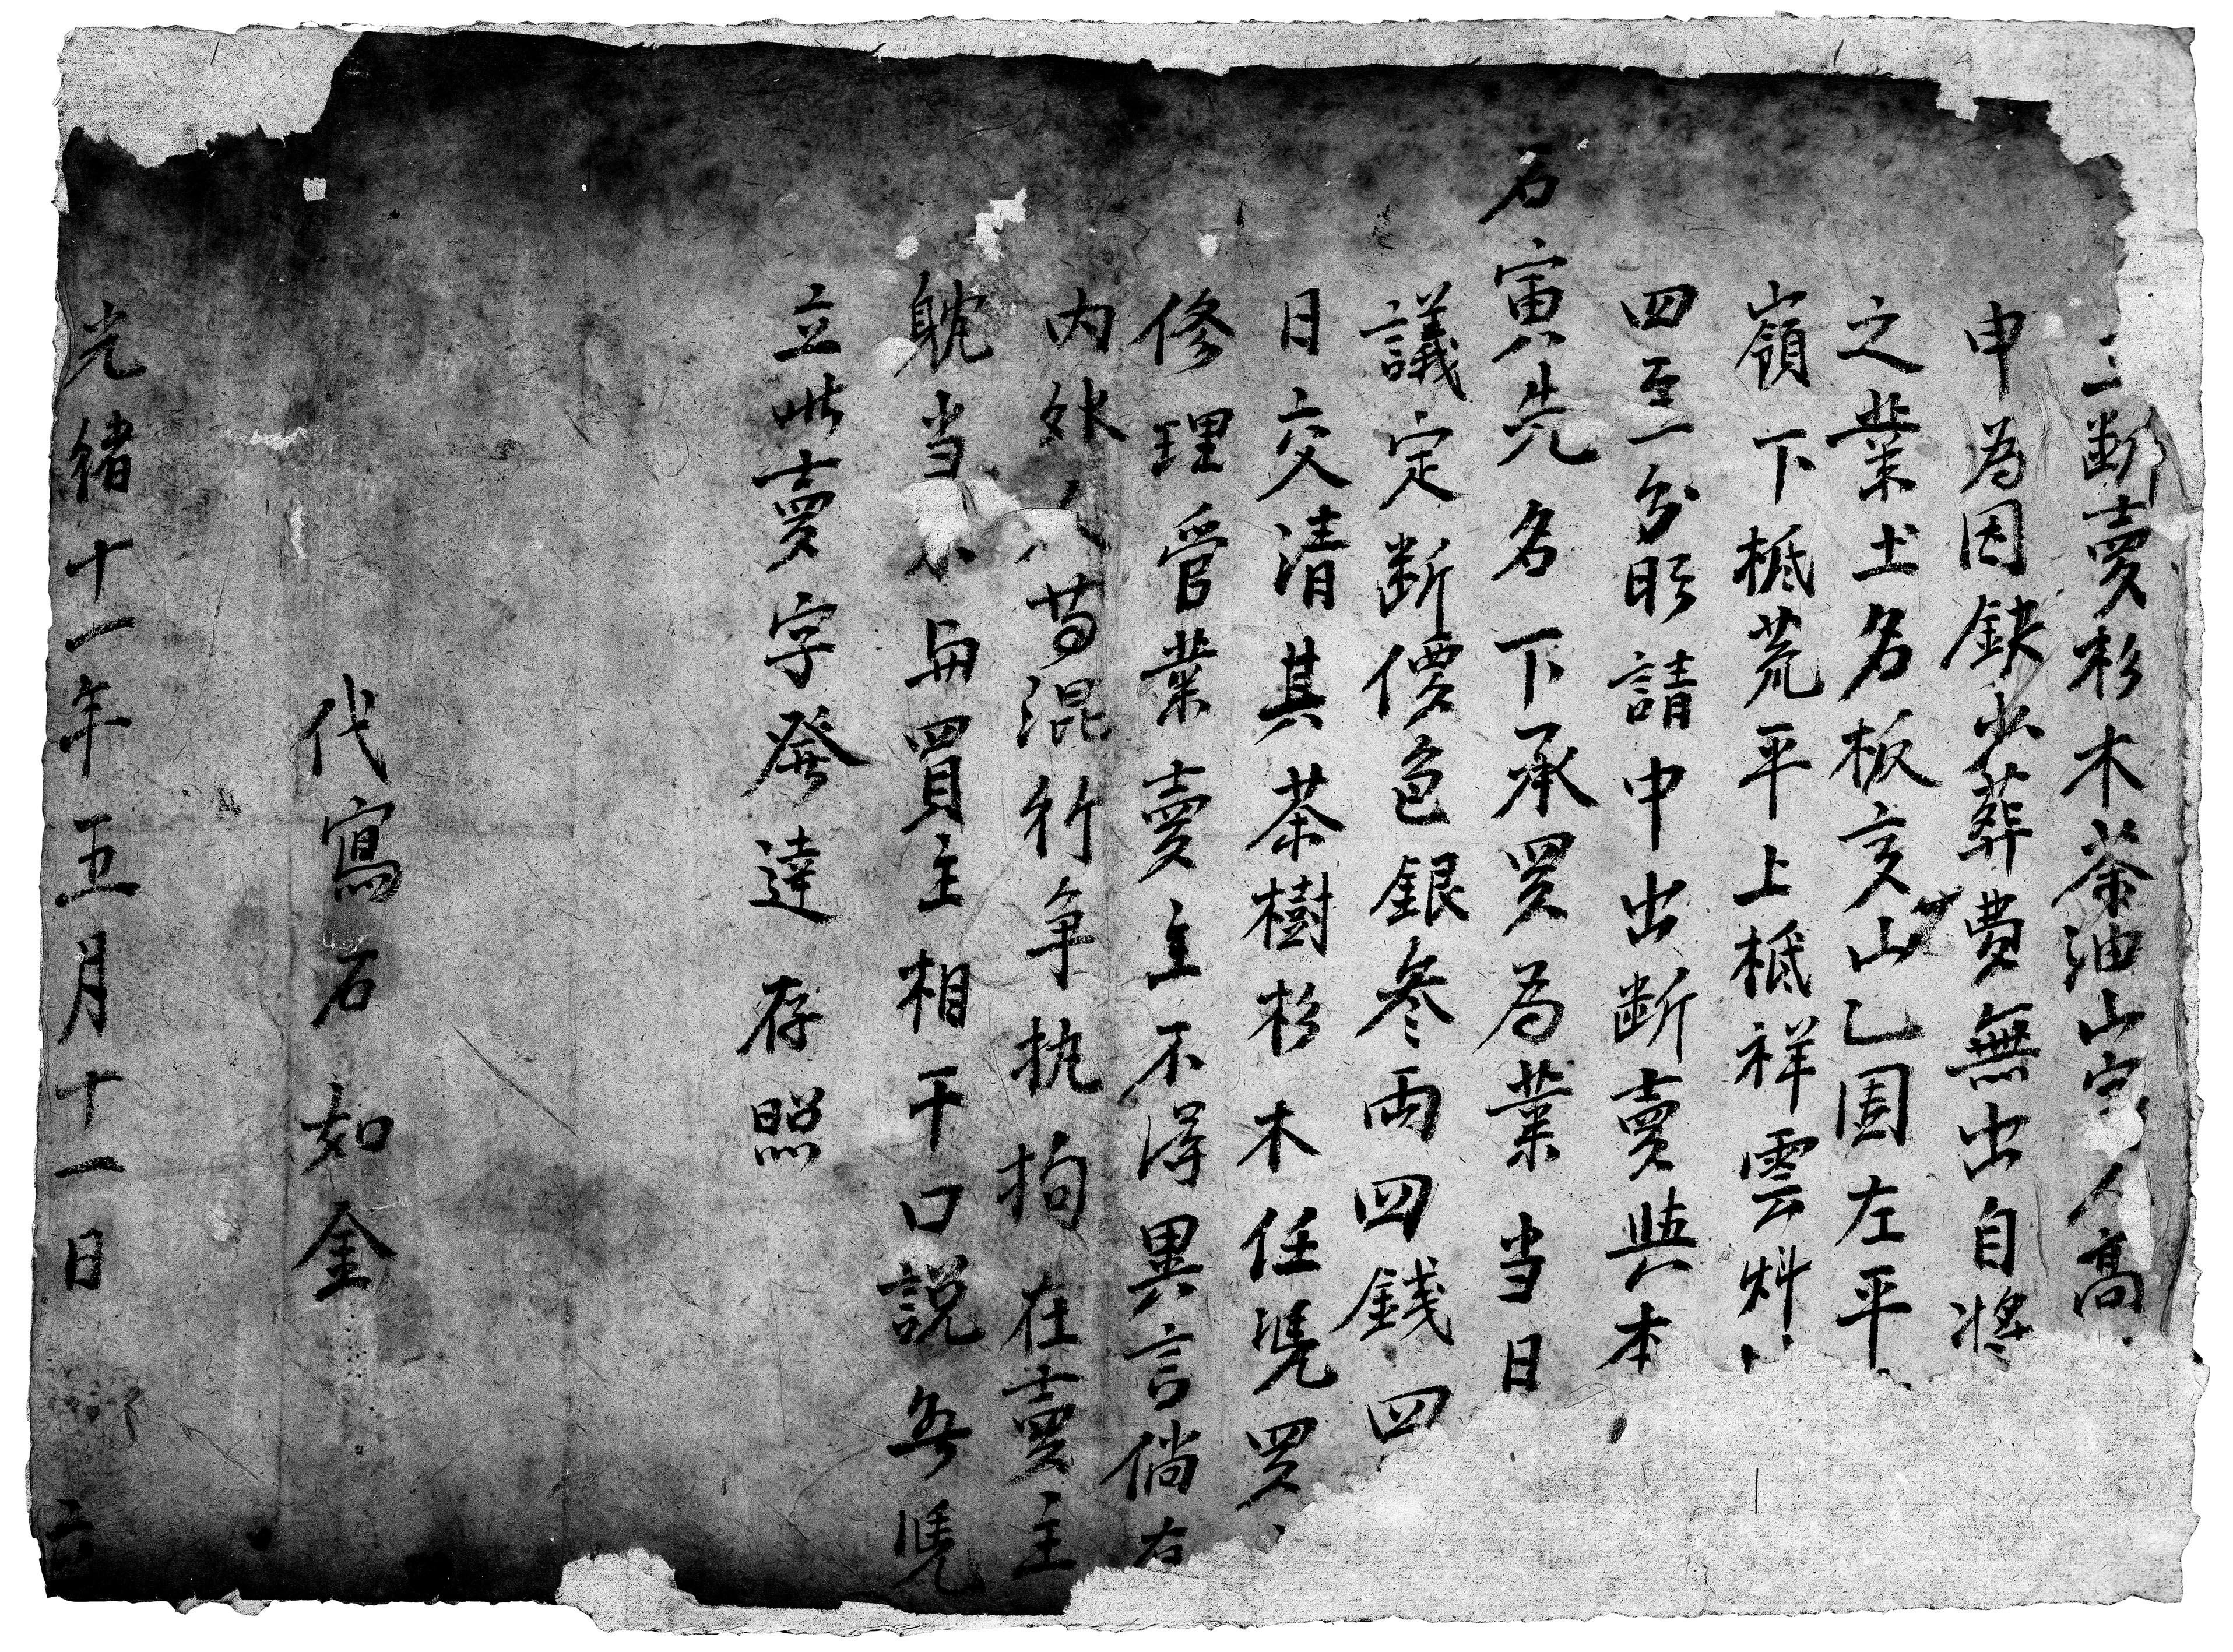 立断賣杉木茶油山字人高
申為因缺少葬費無出自將
之業土名板亥山乙團左平
嶺下柢荒平上柢祥雲艸
四至分明請中出断賣與本
石寅先名下承買為業当日
議定断價色銀叁両四錢四
日交清其茶樹杉木任凴買
修理管業賣主不得異言倘右
内外人等混行争执拘在賣主
躭当不与買主相干口説無凴
立此賣字發達存照
代寫石如金
光緒十一年五月十一日 立